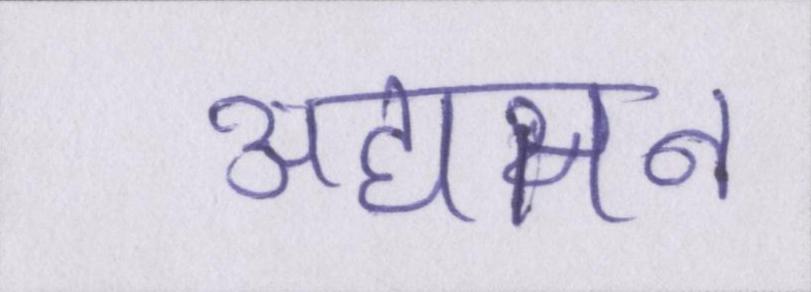 अद्यामन